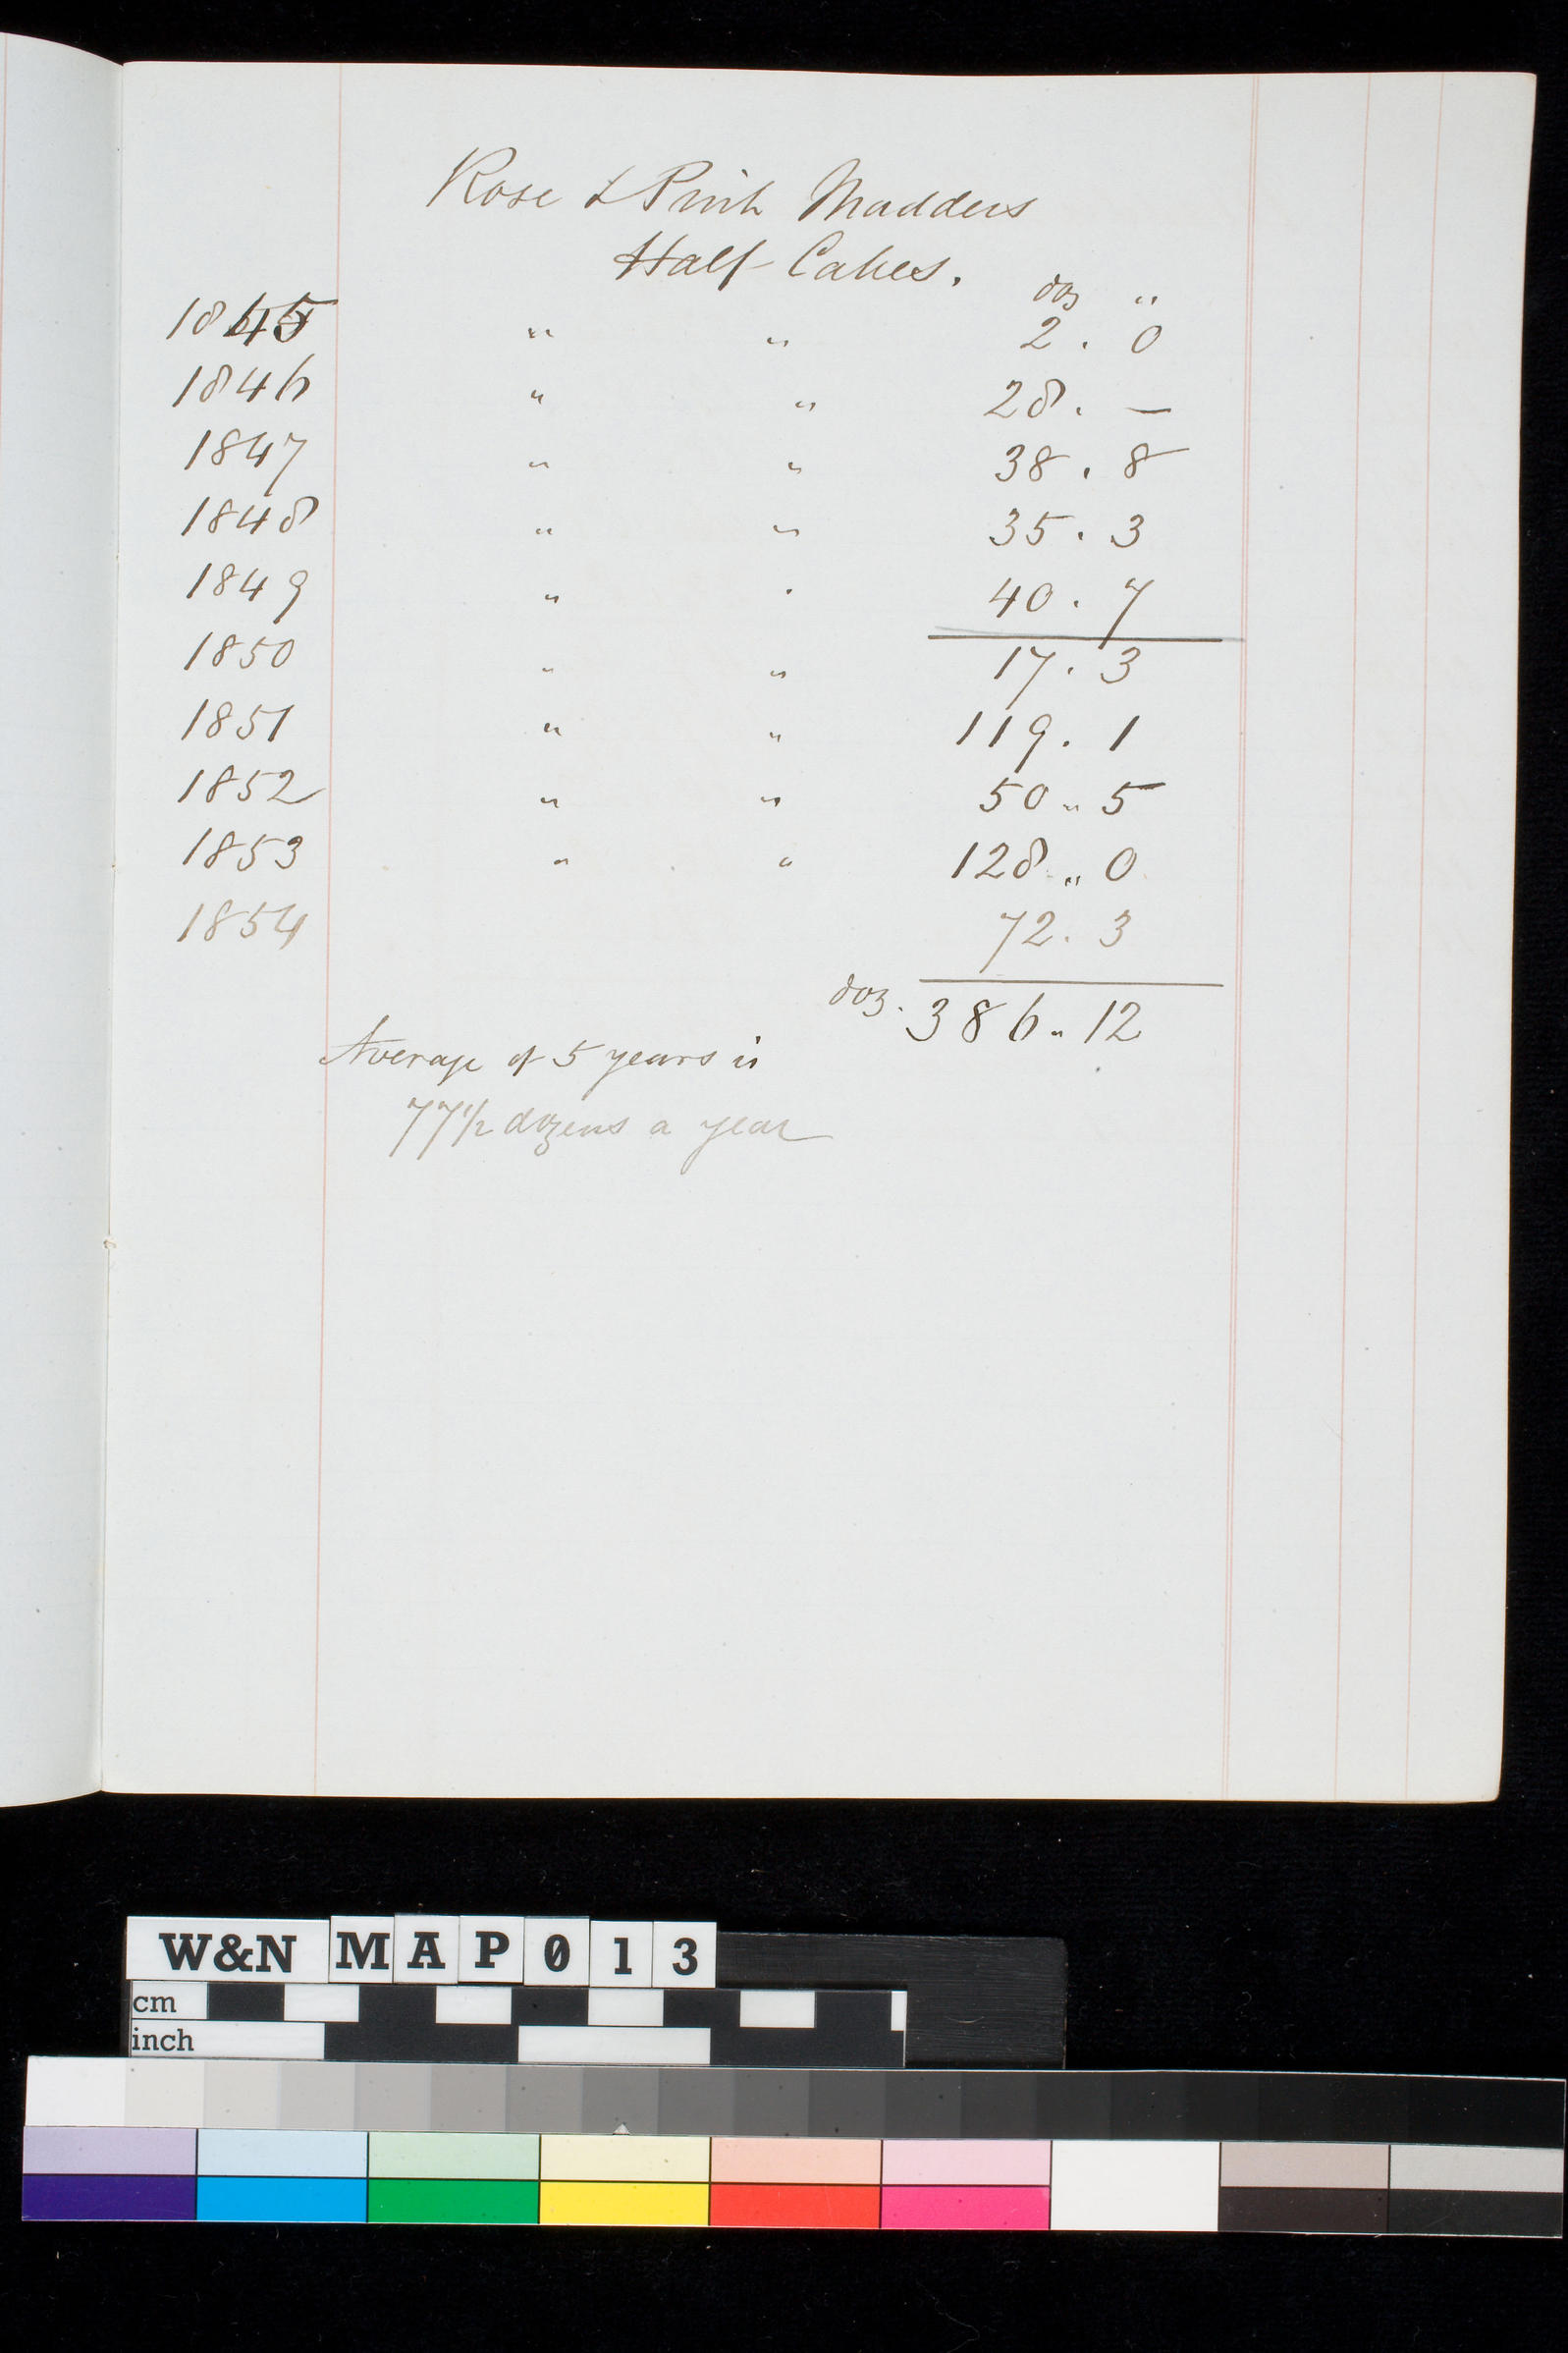 Rose & Pink Madders
Half Cakes.
doz "
1845 " " 2 . 0
1846 " " 28 . —
1847 " " 38 . 8
1848 " " 35 . 3
1849 " " 40 . 7
1850 " " 17 . 3
1851 " " 119 . 1
1852 " " 50 " 5
1853 " " 128 " 0
1854 72 . 3
doz. 386 " 12
Average of 5 years is
77½ dozens a year
W&N MAP013
cm
inch